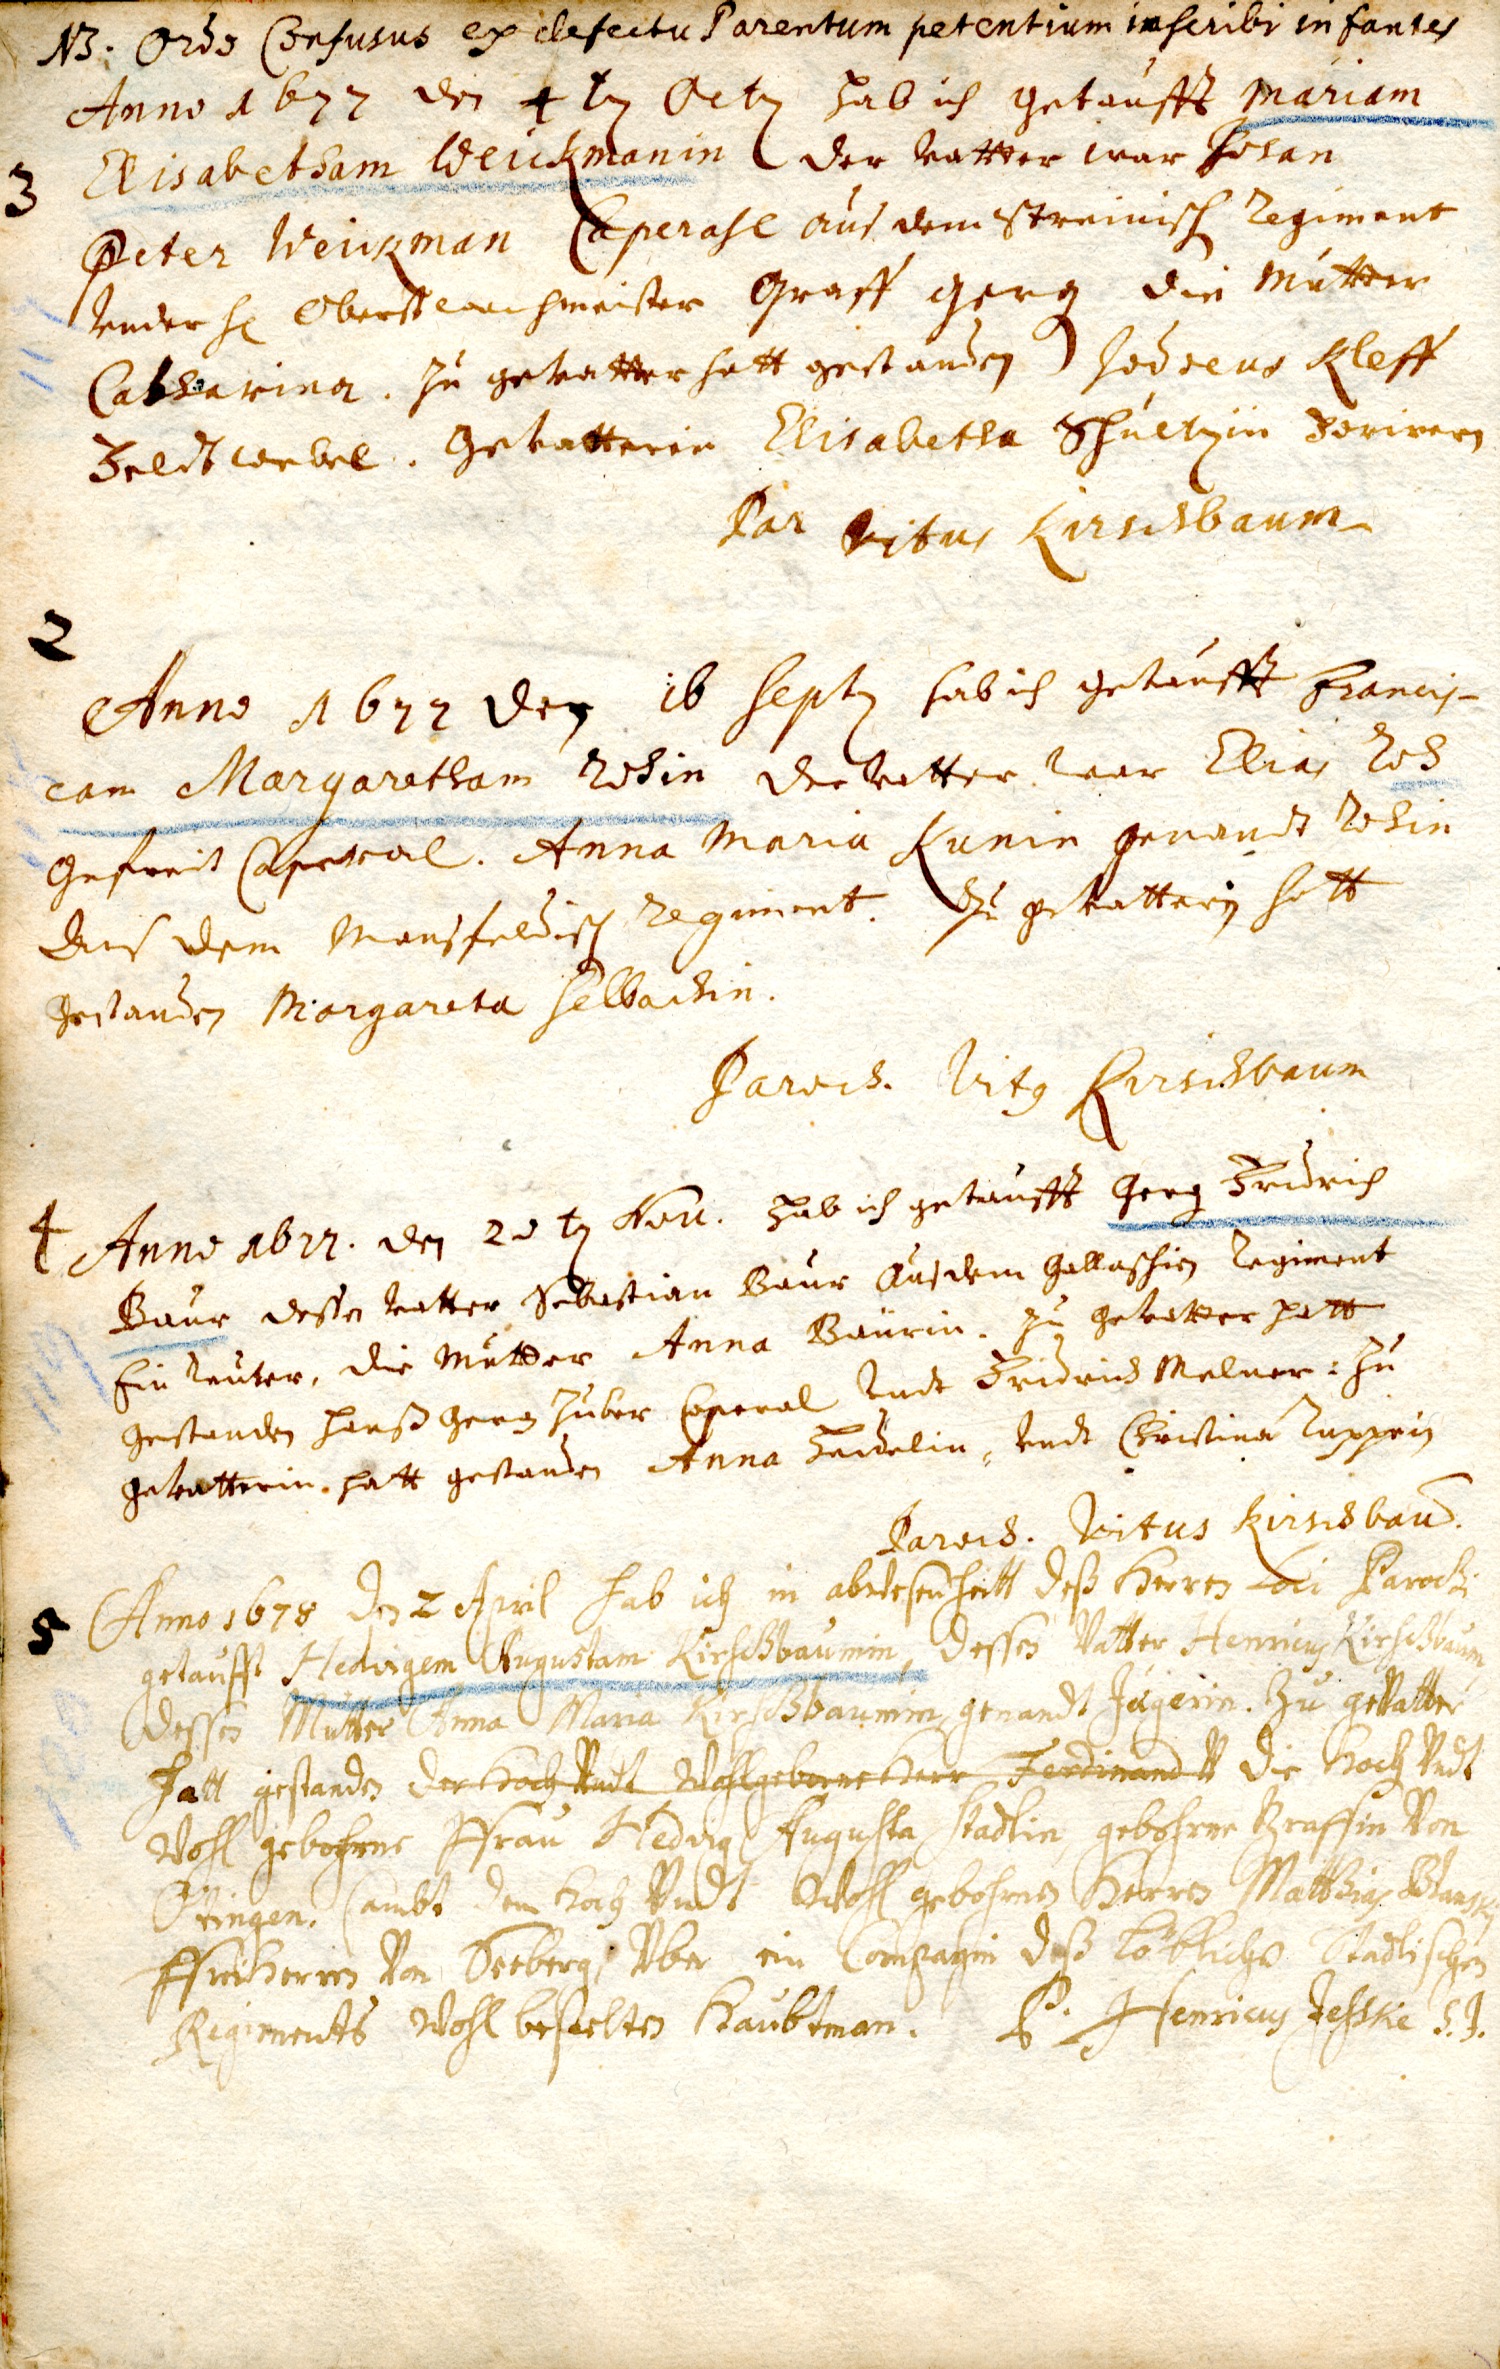 NB. Ordo Confusus ex defectu Parentum petentium inscribi infantes
Anno 1677 den 4 tn Octn hab ich getaufft Mariam
3 Elisabetham Weickmanin der Vattter war Johan
Peter Weickman Caperahl aus dem Streinisch Regiment
Under H Oberstwachmeister Graff Gerg die Mutter
Catharina. Zu gevatter hatt gestanden Jodocus Kleff
Feldtwebel. Gevatterin Elisabetha Schultzin
Par Vitus Kirschbaum
2
Anno 1677 den 16 Septn hab ich getaufft Francis-
cam Margaretham Rohin der Vatter war Elias Roh
Gefreit Caperal. Anna Maria Kunin genandt Rohin
Aus dem Mansfeldisch Regiment. Zu gevatterin hatt
gestanden Margareta Selbachin.
Paroch. Vitus Kirschbaum
4 Anno 1677. den 20 tn Nov. hab ich getaufft Gerg Fridrich
Baur dessen Vatter Sebastian Baur Aus dem Gallaschien Regiment
Ein Reuter, die Mutter Anna Baurin. Zu gevatter hatt
gestanden Hanß Gerg Huber Caperal Undt Fridrich Melner: Zu
gevatterin hatt gestanden Anna Heidelin, Undt Christina Ruppin
Paroch. Vitus Kirschbaum.
5 Anno 1678 den 2 April hab ich in abwesenheitt deß Herren Loci Parochi
getaufft Hedvigem Augustam Kirschbaumin, dessen Vatter Henricus Kirschbaum,
dessen Mutter Anna Maria Kirschbaumin, genandt Jägerin. Zu gevatter
hatt gestanden der Hoch Undt Wohlgeborne Herr Ferdinand V die Hoch Undt
Wohl gebohrne Ffrau Hedvig Augusta Stadlin, gebohrne Graffin Von
Ötingen. Sambt dem Hoch Undt Wohl gebohrnen Herren Matthias
Ffreiherren Von Seeberg, Uber ein Compagni deß Löblichen Stadlischen
Regiments Wohl bestelten Haubtman. P. Henricus Jeschke S.J.